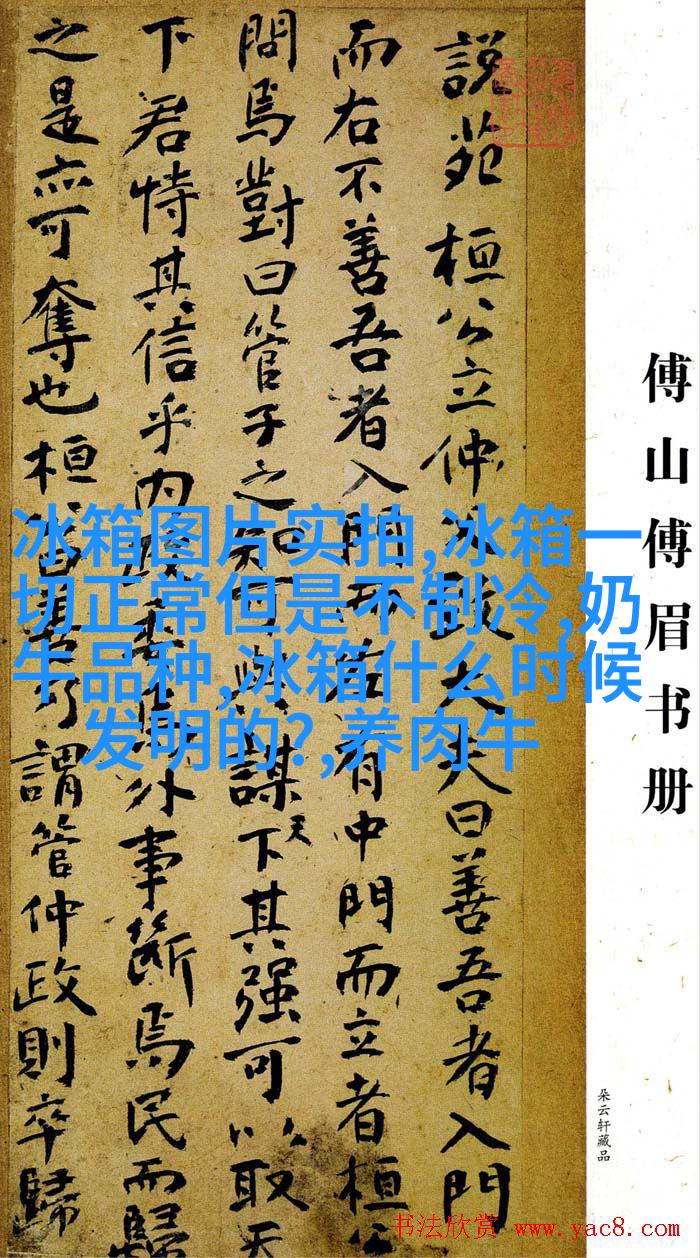 傅山傅眉书册
朵云轩藏品
說苑 桓公立仲父致大夫曰善吾者入門
而右不善吾者入門而左有中門而立者桓公
問焉對曰管子之知可與謀天下其强可以取天
下君恃其信乎内政委焉外事斷焉民而歸
之是亦可奪也桓公曰善乃謂管仲政則卒歸
冰箱图片实拍,冰箱一
切正常但是不制冷,奶
牛品种,冰箱什么时候
发明的?,养肉牛
书法欣赏 www.yac8.com